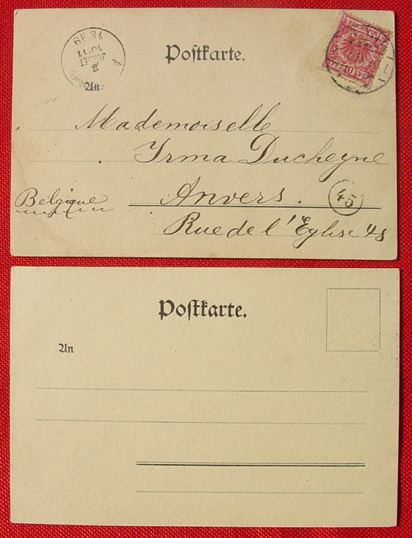 Postkarte.
An
Mademoiselle
Irma Ducheyne
Anvers. 45
Belgique
Rue de l'Eglise 48
Postkarte.
An